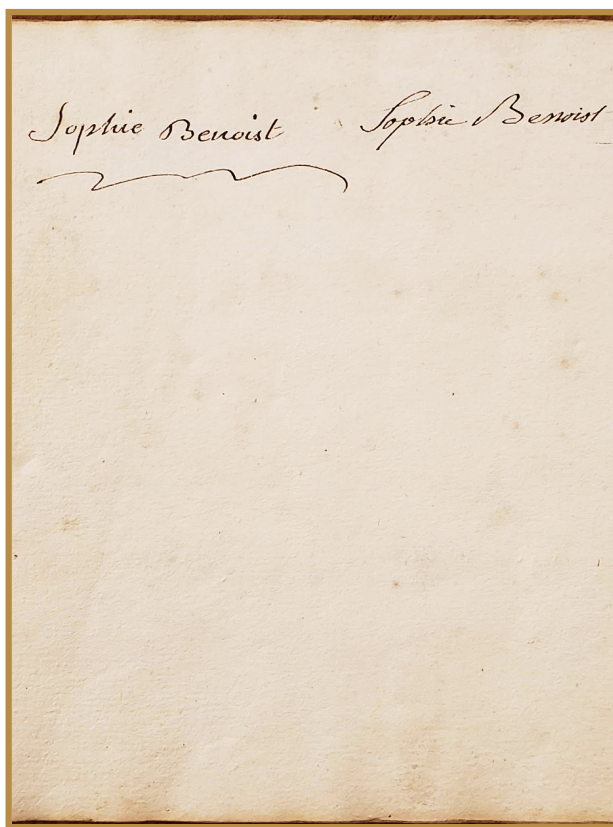 Sophie Benoist Sophie Benoist